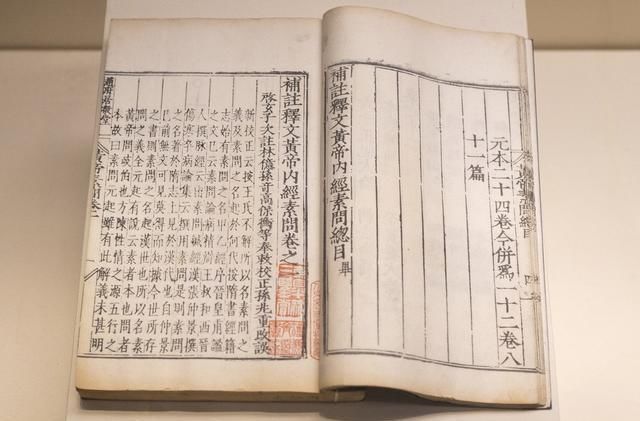 元本二十四卷今併爲一十二卷八
十一篇
補註釋文黃帝內經素問總目 畢
補註釋文黃帝內經素問卷之
啓玄子次註林億孫奇高保衡等奉敕校正孫兆重改誤
新校正云按王氏不解所以名素問之
義及素問之名起於何代按隋書經籍
志始有素問之名甲乙經序晉皇甫謐
之文已云素問論病精辨王叔和西晉
人撰脉經云出素問鍼經漢張仲景撰
傷寒卒病論集云撰用素問是則素問
之名著於隋志上見於漢代也自仲景
已前無文可見莫得而知據今世所存
之書則素問之名起漢世也所以名素
問之義全元起有說云素者本也問者
黃帝問岐伯也方陳性情之源五行之
本故曰素問元起雖有此解義未甚明
趙府居敬堂